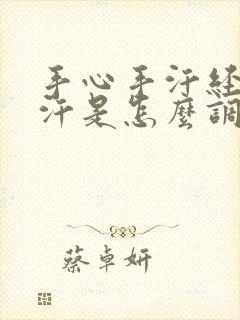 手心手汗経
汗是怎麼調
蔡卓妍